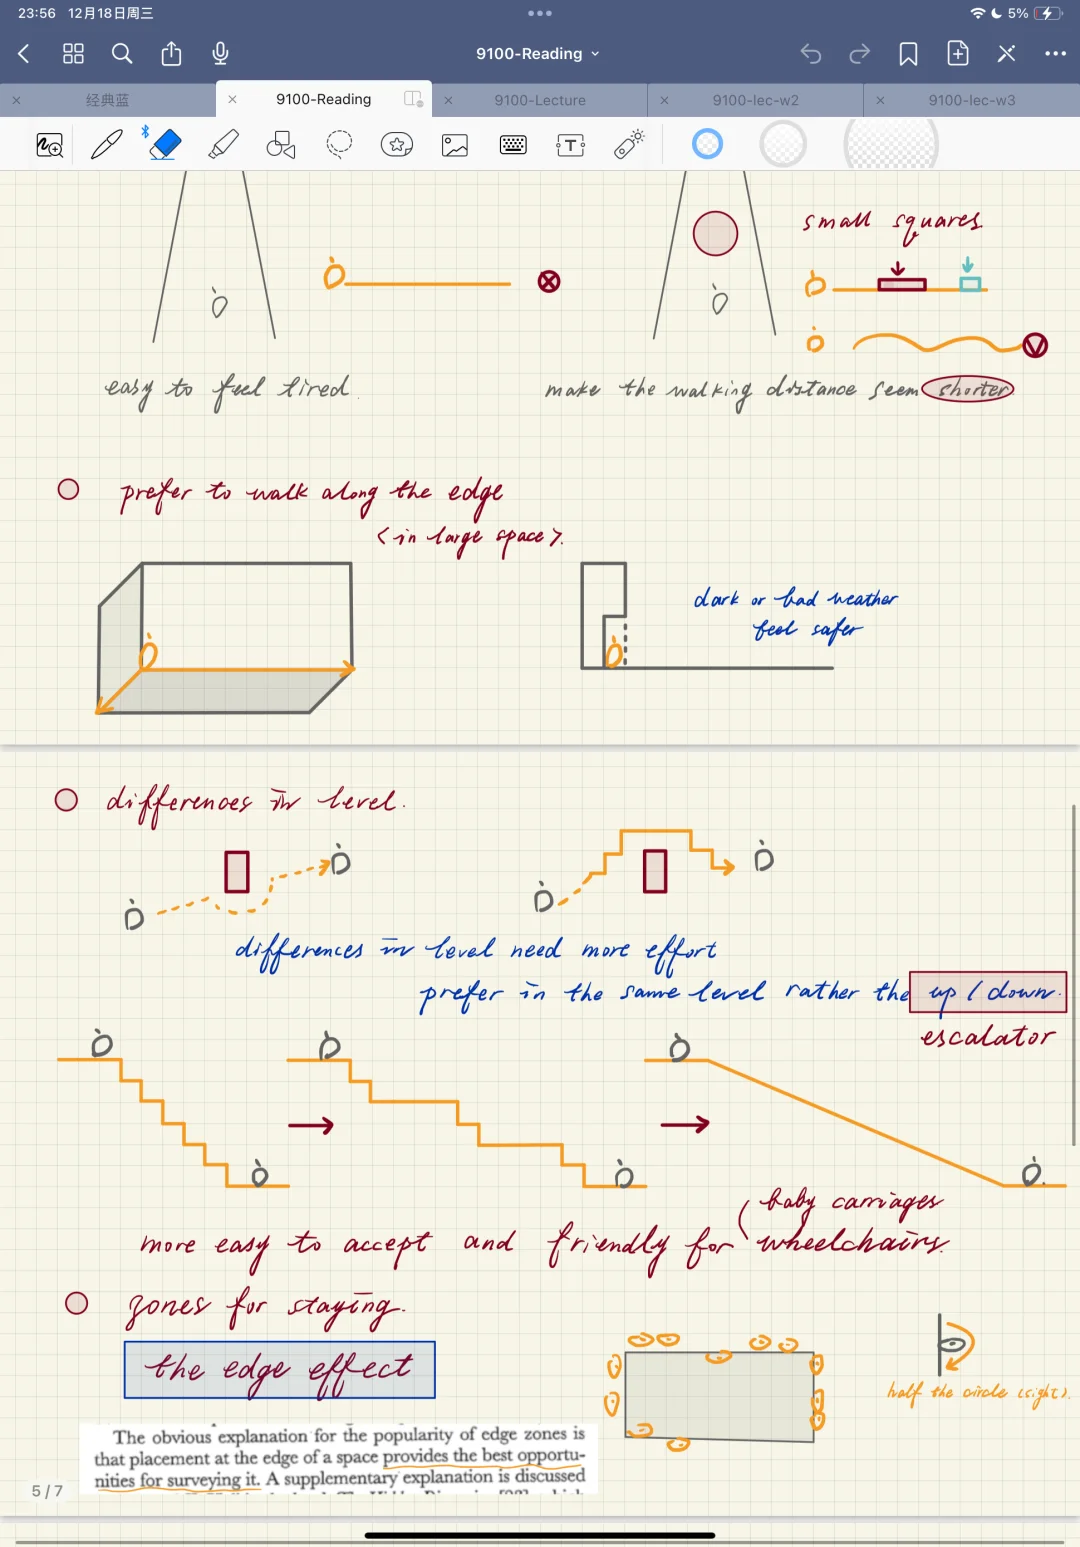 23:56 12月18日周三
5%
9100-Reading
经典蓝
9100-Reading
9100-Lecture
9100-lec-w2
9100-lec-w3
small squares
easy to feel tired.
make the walking distance seem shorter
prefer to walk along the edge
<in large space>.
dark or bad weather
feel safer
differences in level.
differences in level need more effort
prefer in the same level rather the up / down.
escalator
baby carriages
more easy to accept and friendly for wheelchairs.
zones for staying.
the edge effect
half the circle (sight).
The obvious explanation for the popularity of edge zones is
that placement at the edge of a space provides the best opportu-
nities for surveying it. A supplementary explanation is discussed
5 / 7